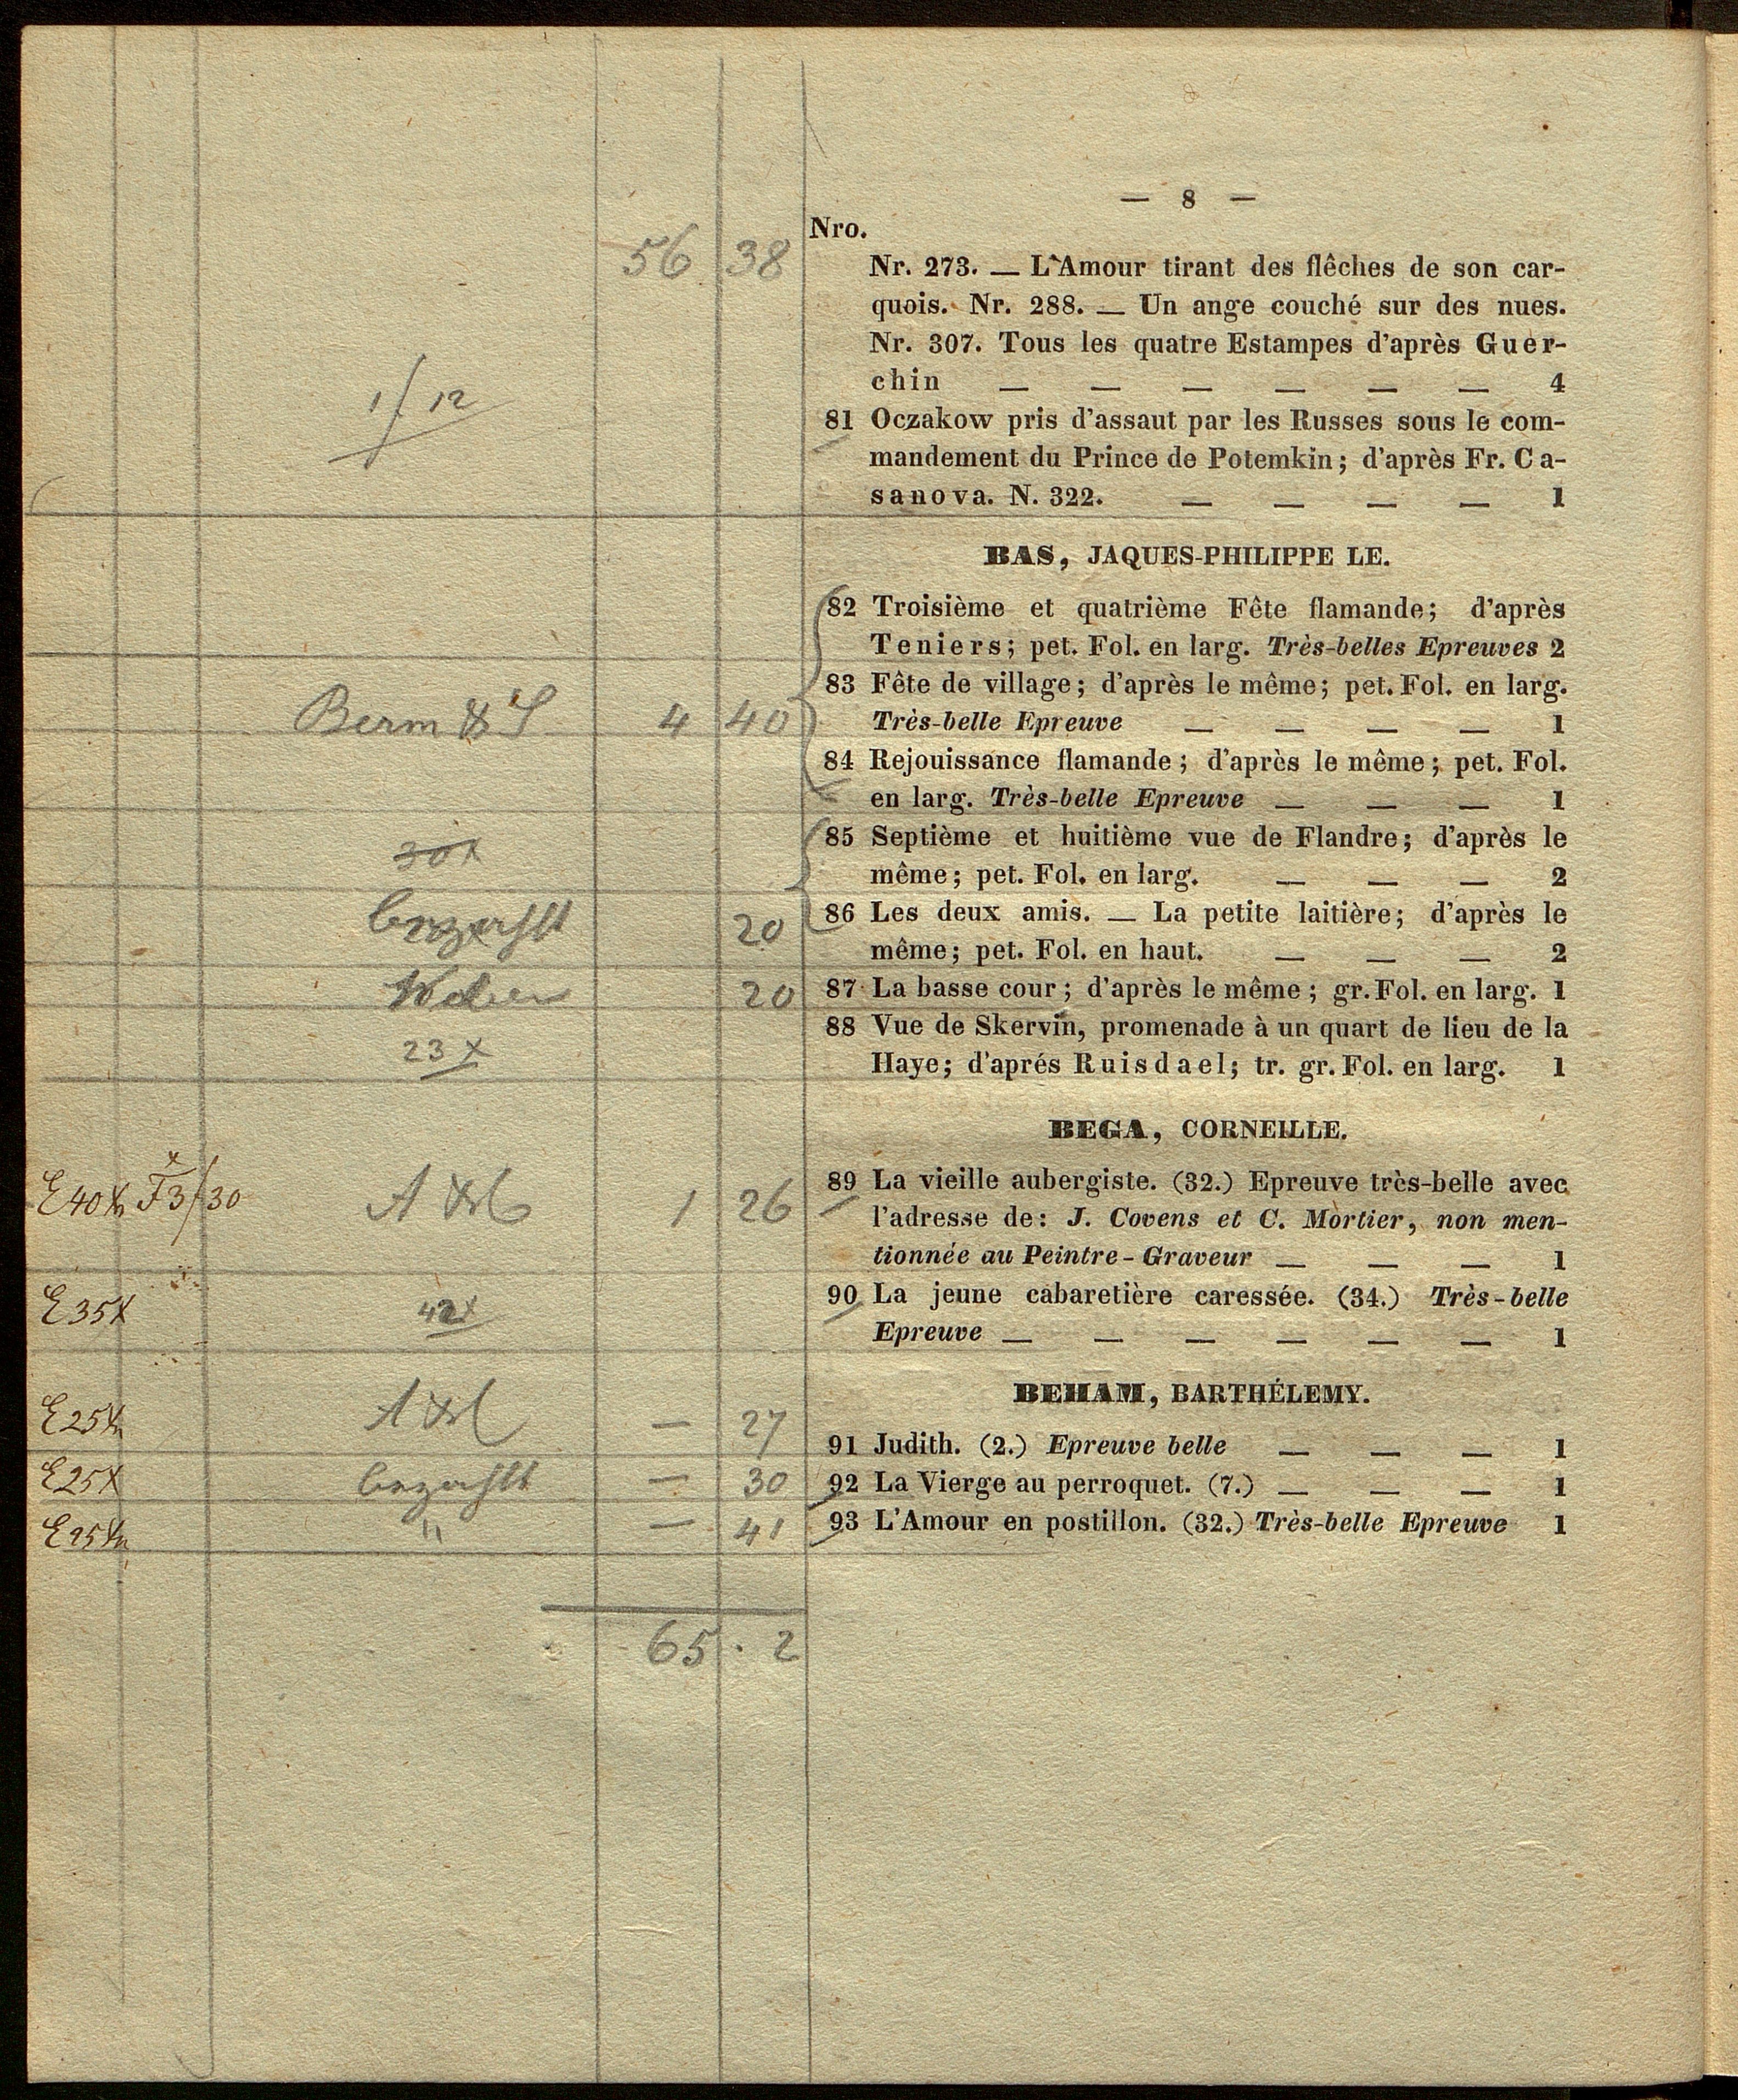 — 8 —
Nro.
56 38
Nr. 273. — L'Amour tirant des flêches de son car-
quois. Nr. 288. — Un ange couché sur des nues.
Nr. 307. Tous les quatre Estampes d'après Guer-
chin — — — — — — 4
1f 12
81 Oczakow pris d'assaut par les Russes sous le com-
mandement du Prince de Potemkin; d'après Fr. Ca-
sanova. N. 322. — — — — 1
BAS, JAQUES-PHILIPPE LE.
82 Troisième et quatrième Fête flamande; d'après
Teniers; pet. Fol. en larg. Très-belles Epreuves 2
83 Fête de village; d'après le même; pet. Fol. en larg.
Berm & S 4 40 Très-belle Epreuve — — — — 1
84 Rejouissance flamande; d'après le même; pet. Fol.
en larg. Très-belle Epreuve — — — 1
30x 85 Septième et huitième vue de Flandre; d'après le
même; pet. Fol. en larg. — — — 2
bezahlt 20 86 Les deux amis. — La petite laitière; d'après le
même; pet. Fol. en haut. — — — 2
20 87 La basse cour; d'après le même; gr. Fol. en larg. 1
88 Vue de Skervin, promenade à un quart de lieu de la
23x Haye; d'aprés Ruisdael; tr. gr. Fol. en larg. 1
BEGA, CORNEILLE.
E40x F3f30 1 26 89 La vieille aubergiste. (32.) Epreuve très-belle avec
l'adresse de: J. Covens et C. Mortier, non men-
tionnée au Peintre-Graveur — — — 1
E35x 42x 90 La jeune cabaretière caressée. (34.) Très-belle
Epreuve — — — — — — 1
BEHAM, BARTHÉLEMY.
E25x — 27 91 Judith. (2.) Epreuve belle — — — 1
E25x bezahlt — 30 92 La Vierge au perroquet. (7.) — — — 1
E25x " — 41 93 L'Amour en postillon. (32.) Très-belle Epreuve 1
65 . 2